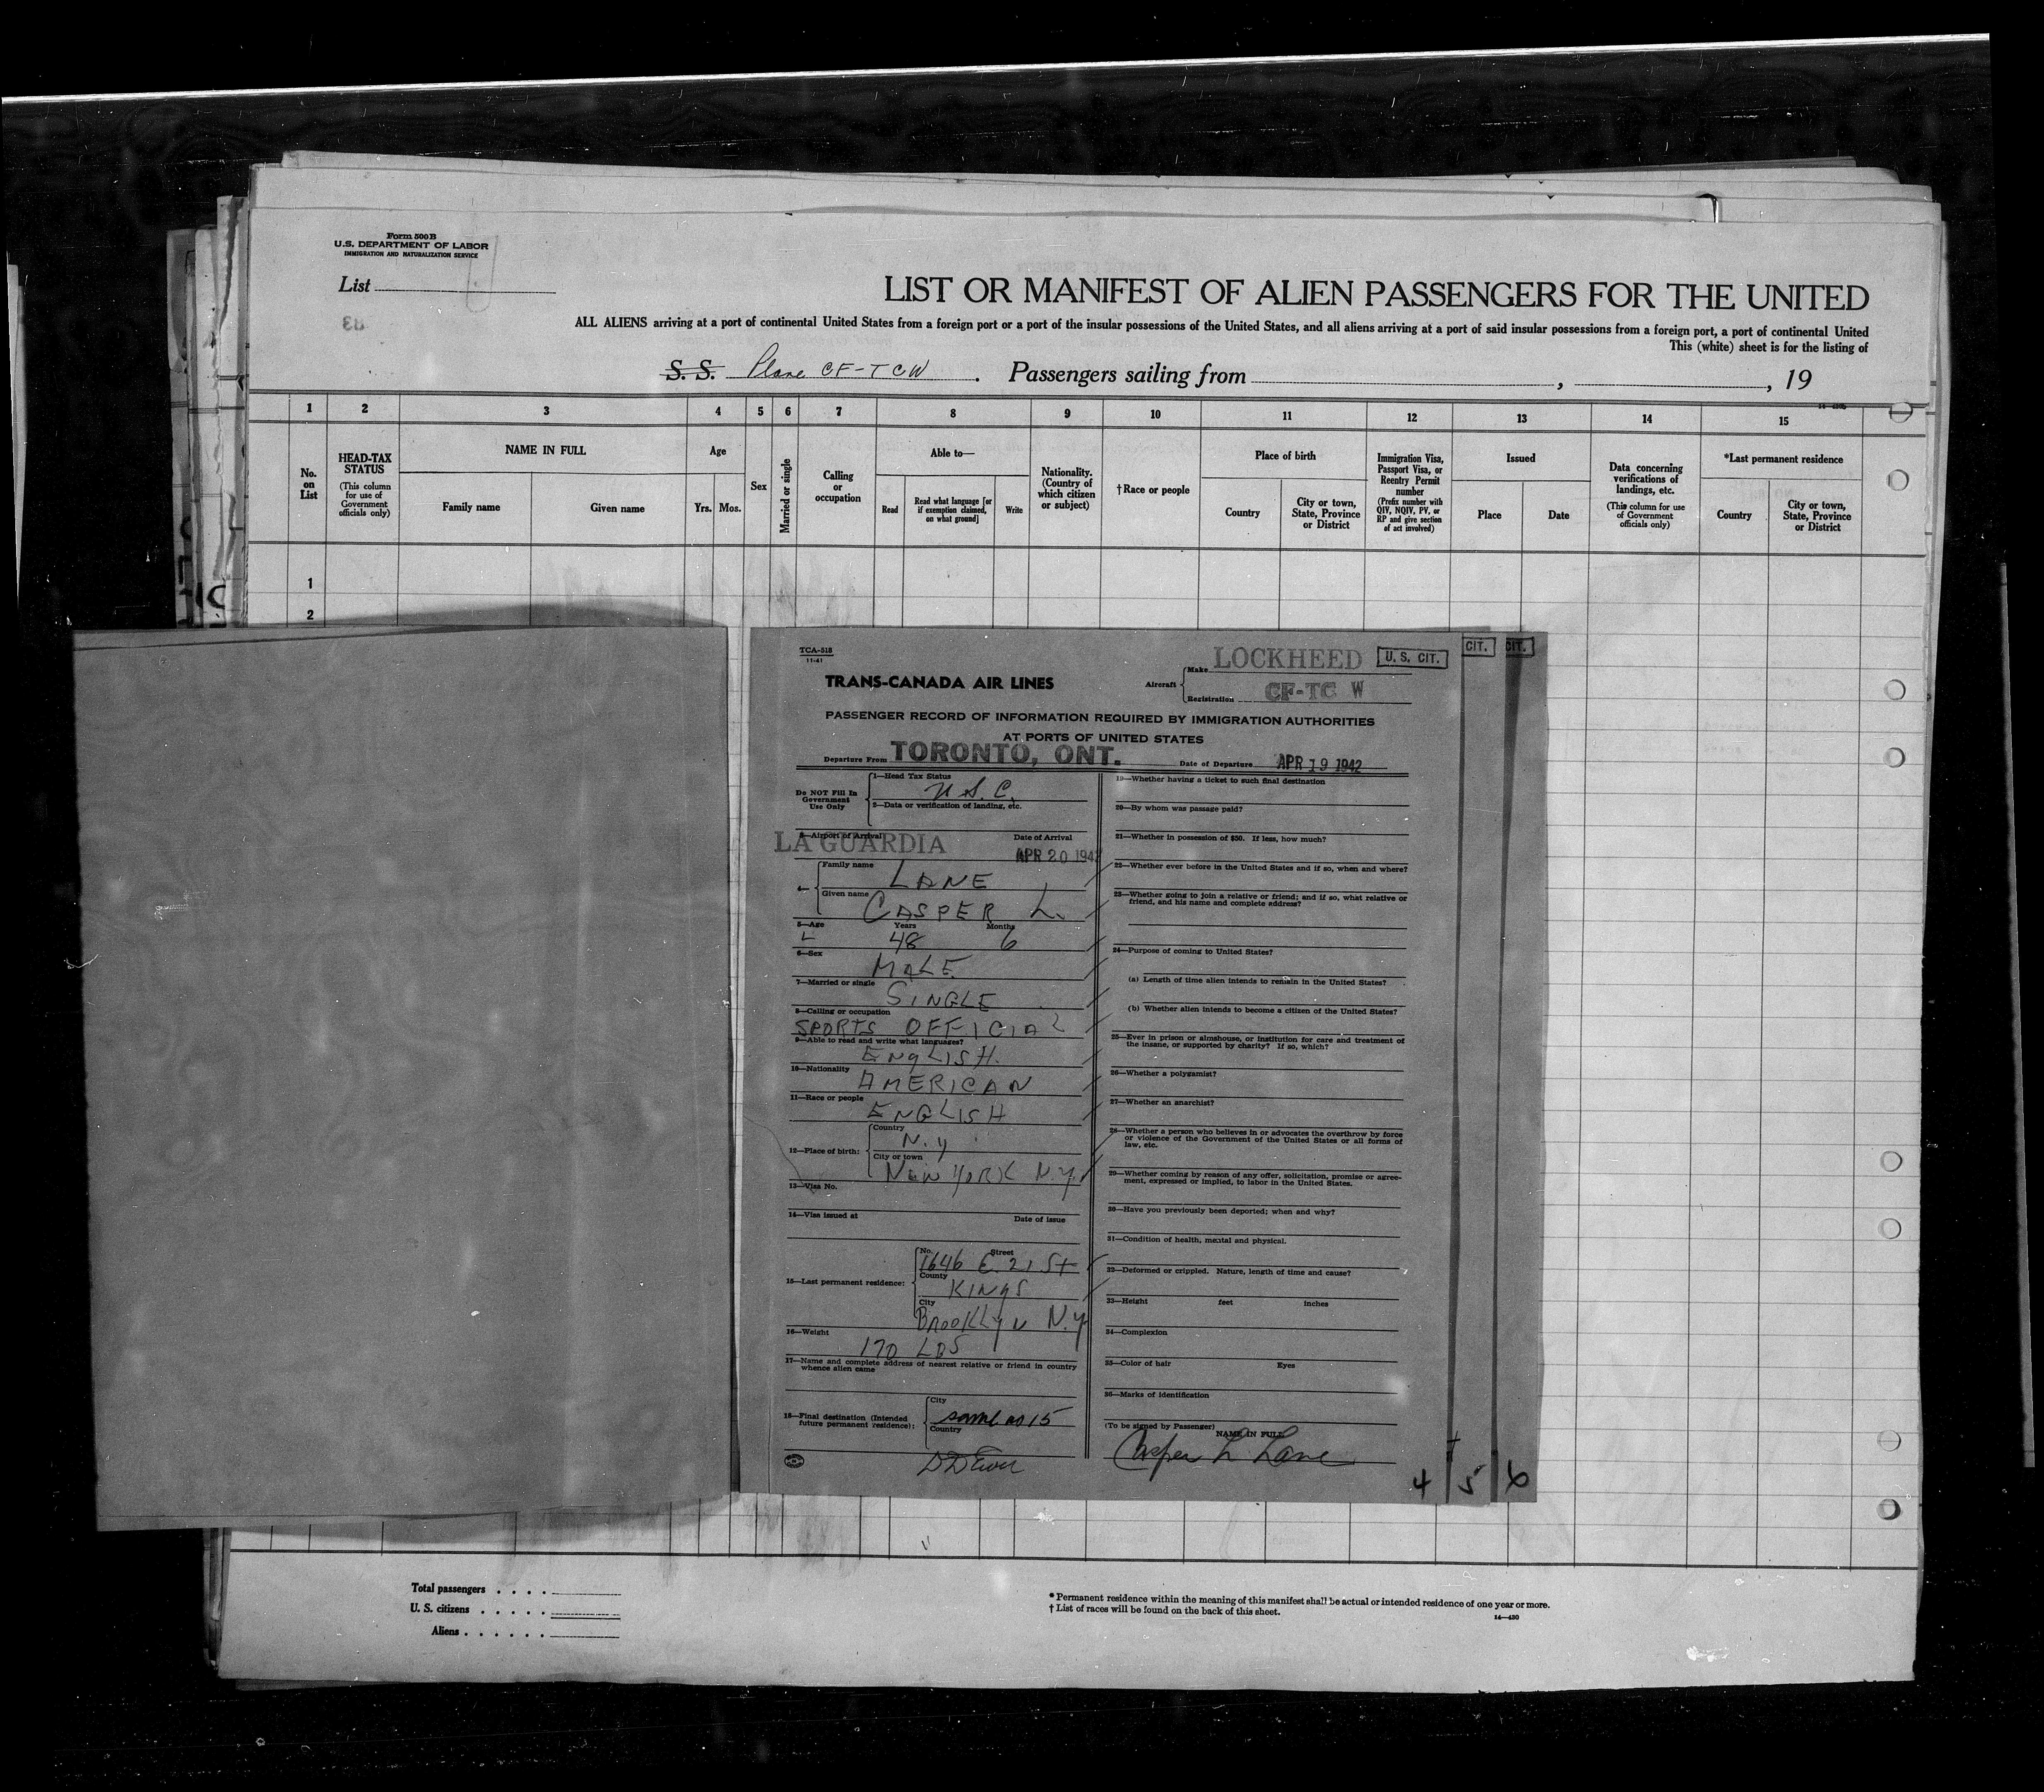 Form 500B
U.S. DEPARTMENT OF LABOR
IMMIGRATION AND NATURALIZATION SERVICE
List
LIST OR MANIFEST OF ALIEN PASSENGERS FOR THE UNITED
ALL ALIENS arriving at a port of continental United States from a foreign port or a port of the insular possessions of the United States, and all aliens arriving at a port of said insular possessions from a foreign port, a port of continental United
This (white) sheet is for the listing of
S. S. Plane CF-TCW . Passengers sailing from , , 19
1 2 3 4 5 6 7 8 9 10 11 12 13 14 15
No. on List
HEAD-TAX STATUS
(This column for use of Government officials only)
NAME IN FULL
Family name
Given name
Age
Yrs. Mos.
Sex
Married or single
Calling or occupation
Able to—
Read
Read what language [or if exemption claimed, on what ground]
Write
Nationality. (Country of which citizen or subject)
†Race or people
Place of birth
Country
City or town, State, Province or District
Immigration Visa, Passport Visa, or Reentry Permit number
(Prefix number with QIV, NQIV, PV, or RP and give section of act involved)
Issued
Place
Date
Data concerning verifications of landings, etc.
(This column for use of Government officials only)
*Last permanent residence
Country
City or town, State, Province or District
1
2
TCA-518
11-41
TRANS-CANADA AIR LINES
Aircraft
Make LOCKHEED
Registration CF-TC W
U. S. CIT.
CIT.
CIT.
PASSENGER RECORD OF INFORMATION REQUIRED BY IMMIGRATION AUTHORITIES
AT PORTS OF UNITED STATES
Departure From TORONTO, ONT. Date of Departure APR 19 1942
Do NOT Fill In Government Use Only
1—Head Tax Status
U.S.C.
2—Data or verification of landing, etc.
3—Airport of Arrival Date of Arrival
LA GUARDIA APR 20 1942
4—
Family name
LANE
Given name
CASPER L.
5—Age Years Months
48 6
6—Sex
MALE
7—Married or single
SINGLE
8—Calling or occupation
SPORTS OFFICIAL
9—Able to read and write what languages?
ENGLISH.
10—Nationality
AMERICAN
11—Race or people
ENGLISH
12—Place of birth:
Country
N.Y
City or town
NEW YORK N.Y.
13—Visa No.
14—Visa issued at Date of issue
15—Last permanent residence:
No. Street
1646 E. 21 St
County
KINGS
City
Brooklyn N.Y.
16—Weight
170 LBS
17—Name and complete address of nearest relative or friend in country whence alien came
18—Final destination (Intended future permanent residence):
City
same as 15
Country
19—Whether having a ticket to such final destination
20—By whom was passage paid?
21—Whether in possession of $50. If less, how much?
22—Whether ever before in the United States and if so, when and where?
23—Whether going to join a relative or friend; and if so, what relative or
friend, and his name and complete address?
24—Purpose of coming to United States?
(a) Length of time alien intends to remain in the United States?
(b) Whether alien intends to become a citizen of the United States?
25—Ever in prison or almshouse, or institution for care and treatment of
the insane, or supported by charity? If so, which?
26—Whether a polygamist?
27—Whether an anarchist?
28—Whether a person who believes in or advocates the overthrow by force
or violence of the Government of the United States or all forms of
law, etc.
29—Whether coming by reason of any offer, solicitation, promise or agree-
ment, expressed or implied, to labor in the United States.
30—Have you previously been deported; when and why?
31—Condition of health, mental and physical.
32—Deformed or crippled. Nature, length of time and cause?
33—Height feet inches
34—Complexion
35—Color of hair Eyes
36—Marks of identification
(To be signed by Passenger)
NAME IN FULL
Casper L Lane
4 5 6
Total passengers
U. S. citizens
Aliens
* Permanent residence within the meaning of this manifest shall be actual or intended residence of one year or more.
† List of races will be found on the back of this sheet.
14—430